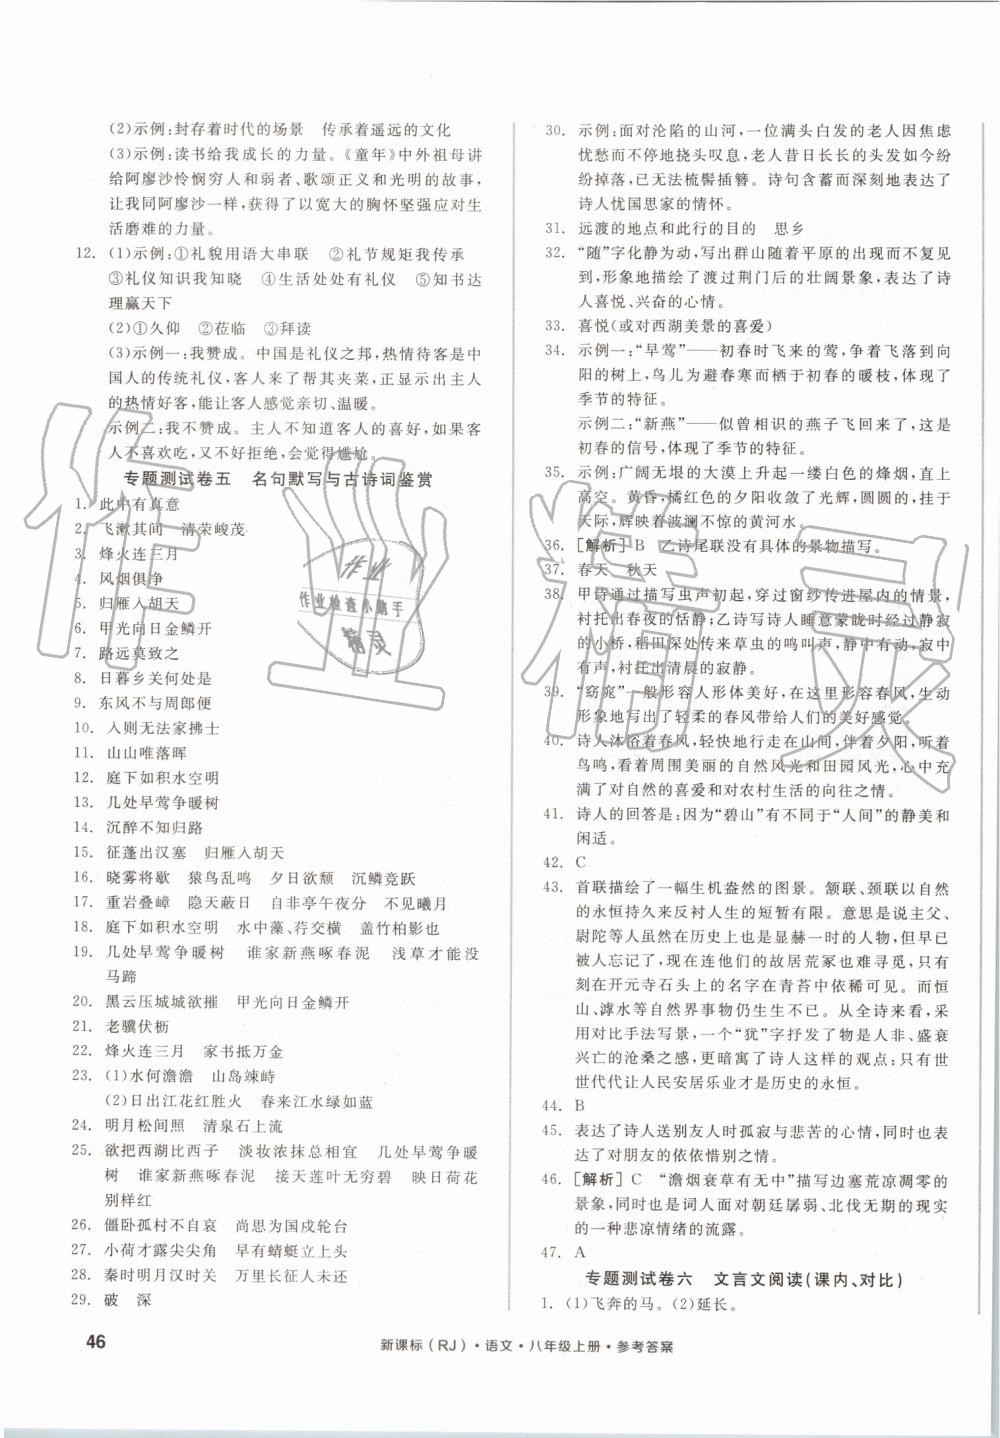 (2)示例:封存着时代的场景　传承着遥远的文化
(3)示例:读书给我成长的力量。《童年》中外祖母讲
给阿廖沙怜悯穷人和弱者、歌颂正义和光明的故事,
让我同阿廖沙一样,获得了以宽大的胸怀坚强应对生
活磨难的力量。
12. (1)示例:①礼貌用语大串联　②礼节规矩我传承
③礼仪知识我知晓　④生活处处有礼仪　⑤知书达
理赢天下
(2)①久仰　②莅临　③拜读
(3)示例一:我赞成。中国是礼仪之邦,热情待客是中
国人的传统礼仪,客人来了帮其夹菜,正显示出主人
的热情好客,能让客人感觉亲切、温暖。
示例二:我不赞成。主人不知道客人的喜好,如果客
人不喜欢吃,又不好拒绝,会觉得尴尬。
专题测试卷五　名句默写与古诗词鉴赏
1. 此中有真意
2. 飞漱其间　清荣峻茂
3. 烽火连三月
4. 风烟俱净
5. 归雁入胡天
6. 甲光向日金鳞开
7. 路远莫致之
8. 日暮乡关何处是
9. 东风不与周郎便
10. 入则无法家拂士
11. 山山唯落晖
12. 庭下如积水空明
13. 几处早莺争暖树
14. 沉醉不知归路
15. 征蓬出汉塞　归雁入胡天
16. 晓雾将歇　猿鸟乱鸣　夕日欲颓　沉鳞竞跃
17. 重岩叠嶂　隐天蔽日　自非亭午夜分　不见曦月
18. 庭下如积水空明　水中藻、荇交横　盖竹柏影也
19. 几处早莺争暖树　谁家新燕啄春泥　浅草才能没
马蹄
20. 黑云压城城欲摧　甲光向日金鳞开
21. 老骥伏枥
22. 烽火连三月　家书抵万金
23. (1)水何澹澹　山岛竦峙
(2)日出江花红胜火　春来江水绿如蓝
24. 明月松间照　清泉石上流
25. 欲把西湖比西子　淡妆浓抹总相宜　几处早莺争暖
树　谁家新燕啄春泥　接天莲叶无穷碧　映日荷花
别样红
26. 僵卧孤村不自哀　尚思为国戍轮台
27. 小荷才露尖尖角　早有蜻蜓立上头
28. 秦时明月汉时关　万里长征人未还
29. 破　深
30. 示例:面对沦陷的山河,一位满头白发的老人因焦虑
忧愁而不停地挠头叹息,老人昔日长长的头发如今纷
纷掉落,已无法梳髻插簪。诗句含蓄而深刻地表达了
诗人忧国思家的情怀。
31. 远渡的地点和此行的目的　思乡
32. “随”字化静为动,写出群山随着平原的出现而不复见
到,形象地描绘了渡过荆门后的壮阔景象,表达了诗
人喜悦、兴奋的心情。
33. 喜悦(或对西湖美景的喜爱)
34. 示例一:“早莺”——初春时飞来的莺,争着飞落到向
阳的树上,鸟儿为避春寒而争着向阳的暖枝,体现了
季节的特征。
示例二:“新燕”——似曾相识的燕子飞回来了,这是
初春的信号,体现了季节的特征。
35. 示例:广阔无垠的大漠上升起一缕白色的烽烟,直上
高空。黄昏,橘红色的夕阳收敛了光耀,圆圆的,挂于
天际,辉映着波澜不惊的黄河水。
36. [解析]B　乙诗尾联没有具体的景物描写。
37. 春天　秋天
38. 甲诗通过描写虫声初起,穿过窗纱传进屋内的情景,
衬托出春夜的恬静;乙诗写诗人睡意蒙眬时经过溪上
的小桥,稻田深处传来草虫的鸣叫声,静中有动,寂中
有声,衬托出清晨的寂静。
39. “窈窕”一般形容人形体美好,在这里形容春风,生动
形象地写出了轻柔的春风带给人们的美好感觉。
40. 诗人沐浴着春风,轻快地行走在山间,伴着夕阳,听着
鸟鸣,看着周围美丽的自然风光和田园风光,心中充
满了对自然的喜爱和对农村生活的向往之情。
41. 诗人的回答是:因为“碧山”有不同于“人间”的静美和
闲适。
42. C
43. 首联描绘了一幅生机盎然的图景。颔联、颈联以自然
的永恒持久来反衬人生的短暂有限。意思是说主父、
尉陀等人虽然在历史上也是显赫一时的人物,但早已
被人忘记了,现在连他们的故居荒冢也无处寻觅,只
有在开元寺石头上的名字在青苔中依稀可见。而恒
山、滹水等自然界事物仍生生不已。从全诗来看,采
用对比手法写景,一个“犹”字抒发了物是人非、盛衰
兴亡的沧桑之感,更暗寓了诗人这样的观点:只有世
世代代让人民安居乐业才是历史的永恒。
44. B
45. 表达了诗人送别友人时孤寂与悲苦的心情,同时也表
达了对朋友的依依惜别之情。
46. [解析]C　“澹烟衰草有无中”描写边塞荒凉凋零的
景象,同时也是词人面对朝廷孱弱、北伐无成而生发
的一种悲凉情绪的流露。
47. A
专题测试卷六　文言文阅读(课内、对比)
1. (1)飞奔的马。(2)延长。
46
新课标(RJ)·语文·八年级上册·参考答案
作业精灵
作业
作业检查小助手
精灵